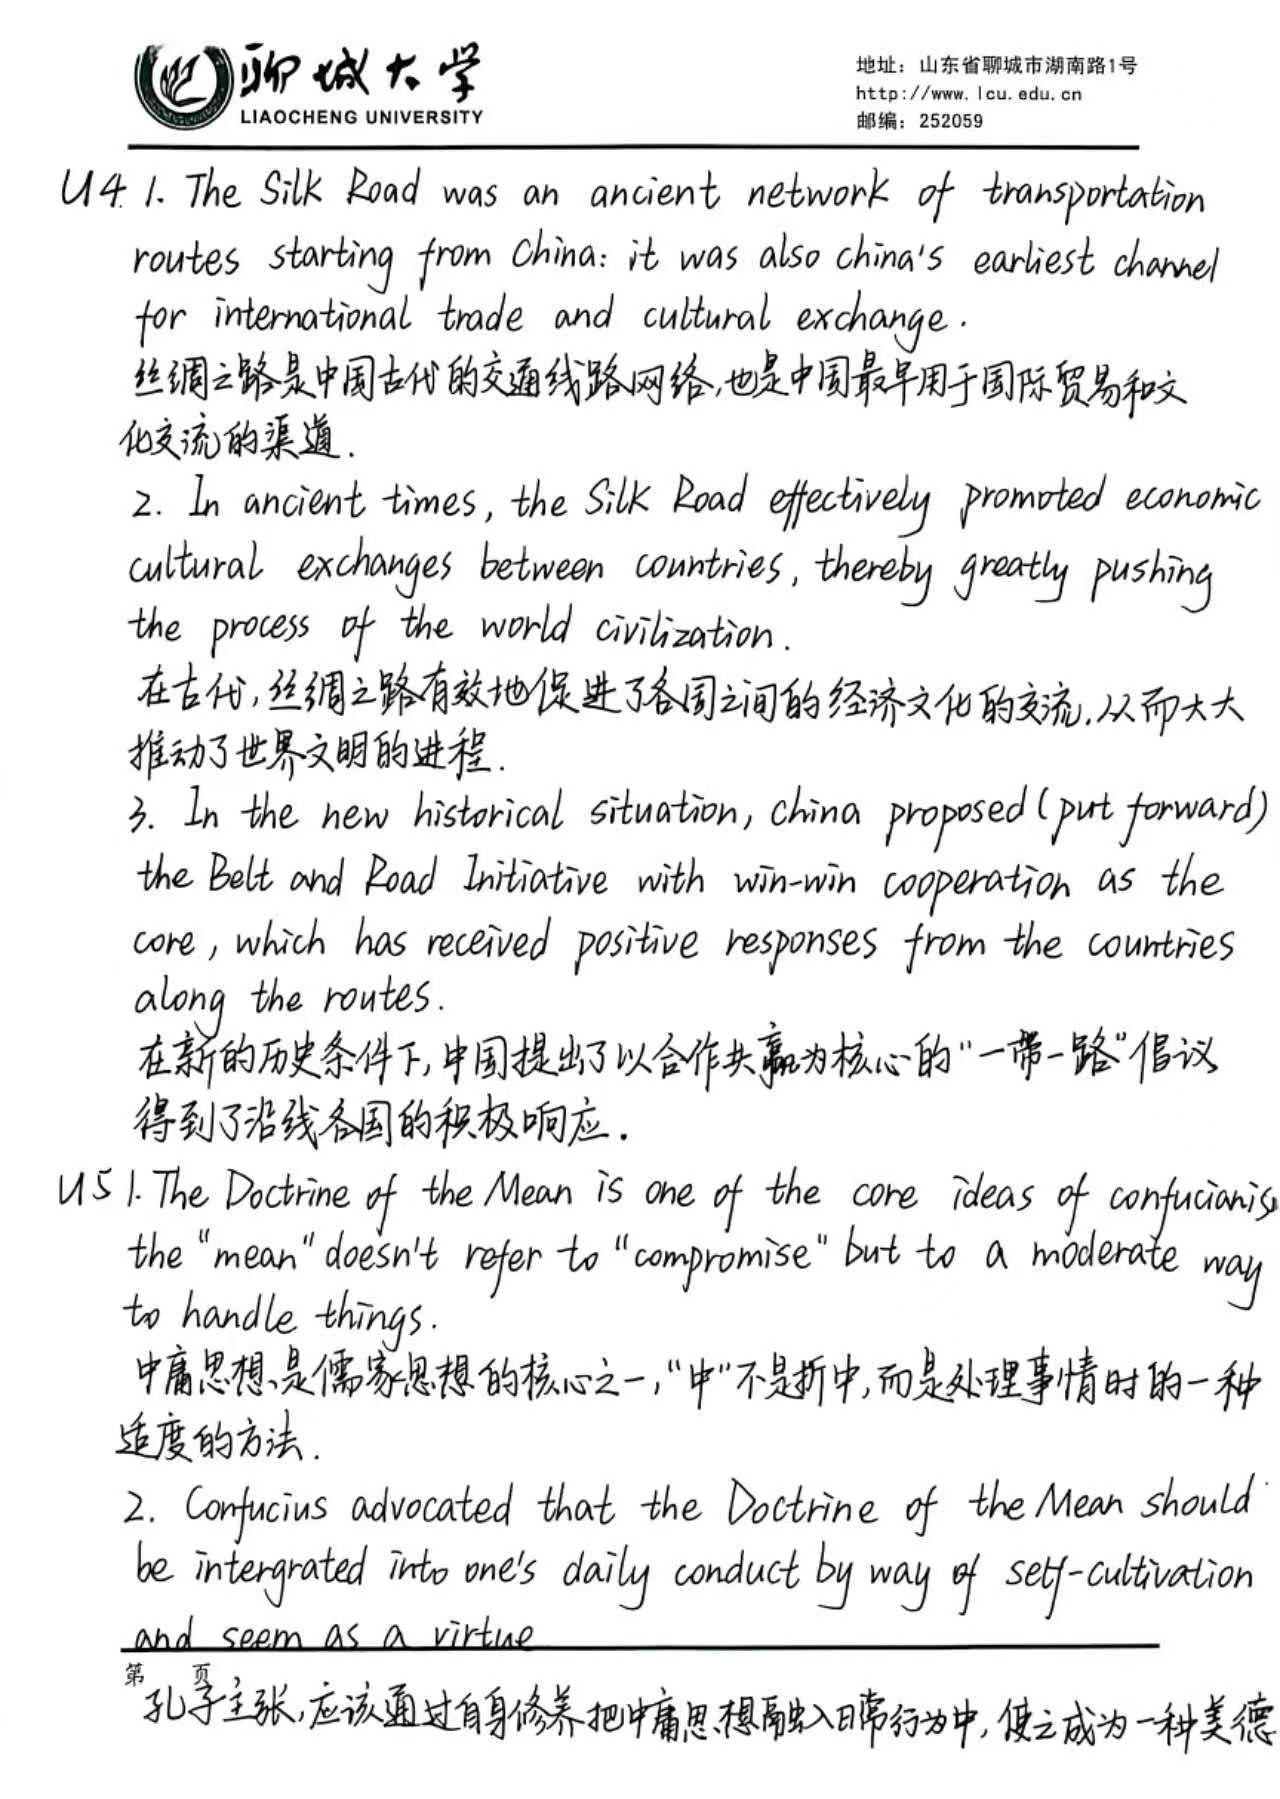 聊城大学
LIAOCHENG UNIVERSITY
地址：山东省聊城市湖南路1号
http://www.lcu.edu.cn
邮编：252059
U4. 1. The Silk Road was an ancient network of transportation
routes starting from China: it was also china's earliest channel
for international trade and cultural exchange.
丝绸之路是中国古代的交通线路网络,也是中国最早用于国际贸易和文
化交流的渠道.
2. In ancient times, the Silk Road effectively promoted economic
cultural exchanges between countries, thereby greatly pushing
the process of the world civilization.
在古代,丝绸之路有效地促进了各国之间的经济文化的交流,从而大大
推动了世界文明的进程.
3. In the new historical situation, china proposed (put forward)
the Belt and Road Initiative with win-win cooperation as the
core, which has received positive responses from the countries
along the routes.
在新的历史条件下,中国提出了以合作共赢为核心的"一带一路"倡议
得到了沿线各国的积极响应.
U5 1. The Doctrine of the Mean is one of the core ideas of confucianis
the "mean" doesn't refer to "compromise" but to a moderate way
to handle things.
中庸思想是儒家思想的核心之一,"中"不是折中,而是处理事情时的一种
适度的方法.
2. Confucius advocated that the Doctrine of the Mean should
be intergrated into one's daily conduct by way of self-cultivation
and seem as a virtue
第 页
孔子主张,应该通过自身修养把中庸思想融入日常行为中,使之成为一种美德